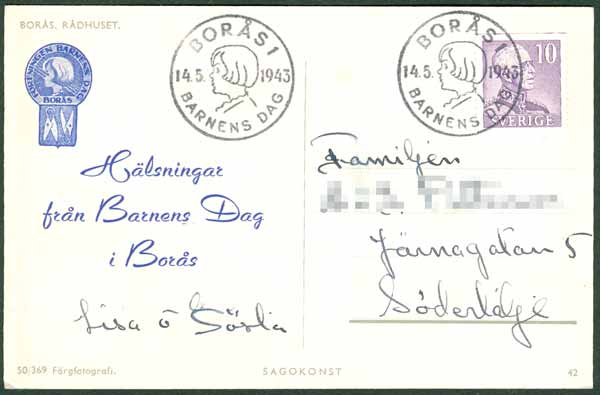 BORÅS. RÅDHUSET.
FÖRENINGEN BARNENS DAG
BORÅS
BORÅS 1
14.5. 1943
BARNENS DAG
BORÅS 1
14.5. 1943
BARNENS DAG
10
SVERIGE
Hälsningar
från Barnens Dag
i Borås
Lisa o Gösta
Familjen
Järnagatan 5
Södertälje
50/369 Färgfotografi.
SAGOKONST
42